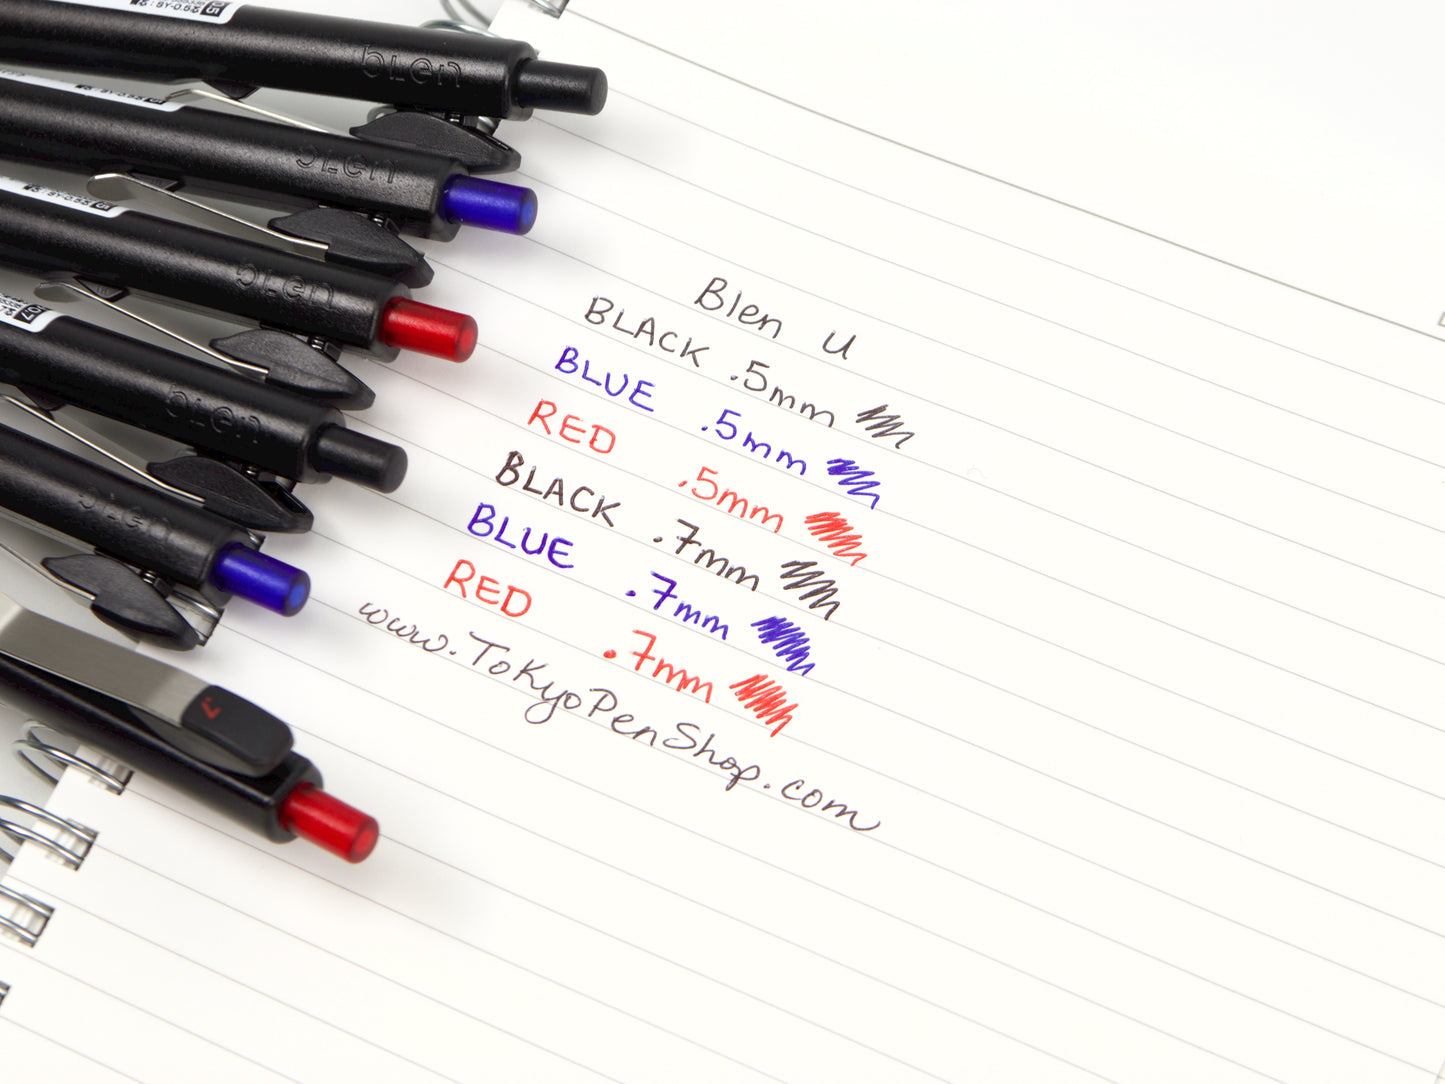 bLen
bLen
bLen
bLen
bLen
Blen U
BLACK .5mm
BLUE .5mm
RED .5mm
BLACK .7mm
BLUE .7mm
RED .7mm
www.TokyoPenShop.com